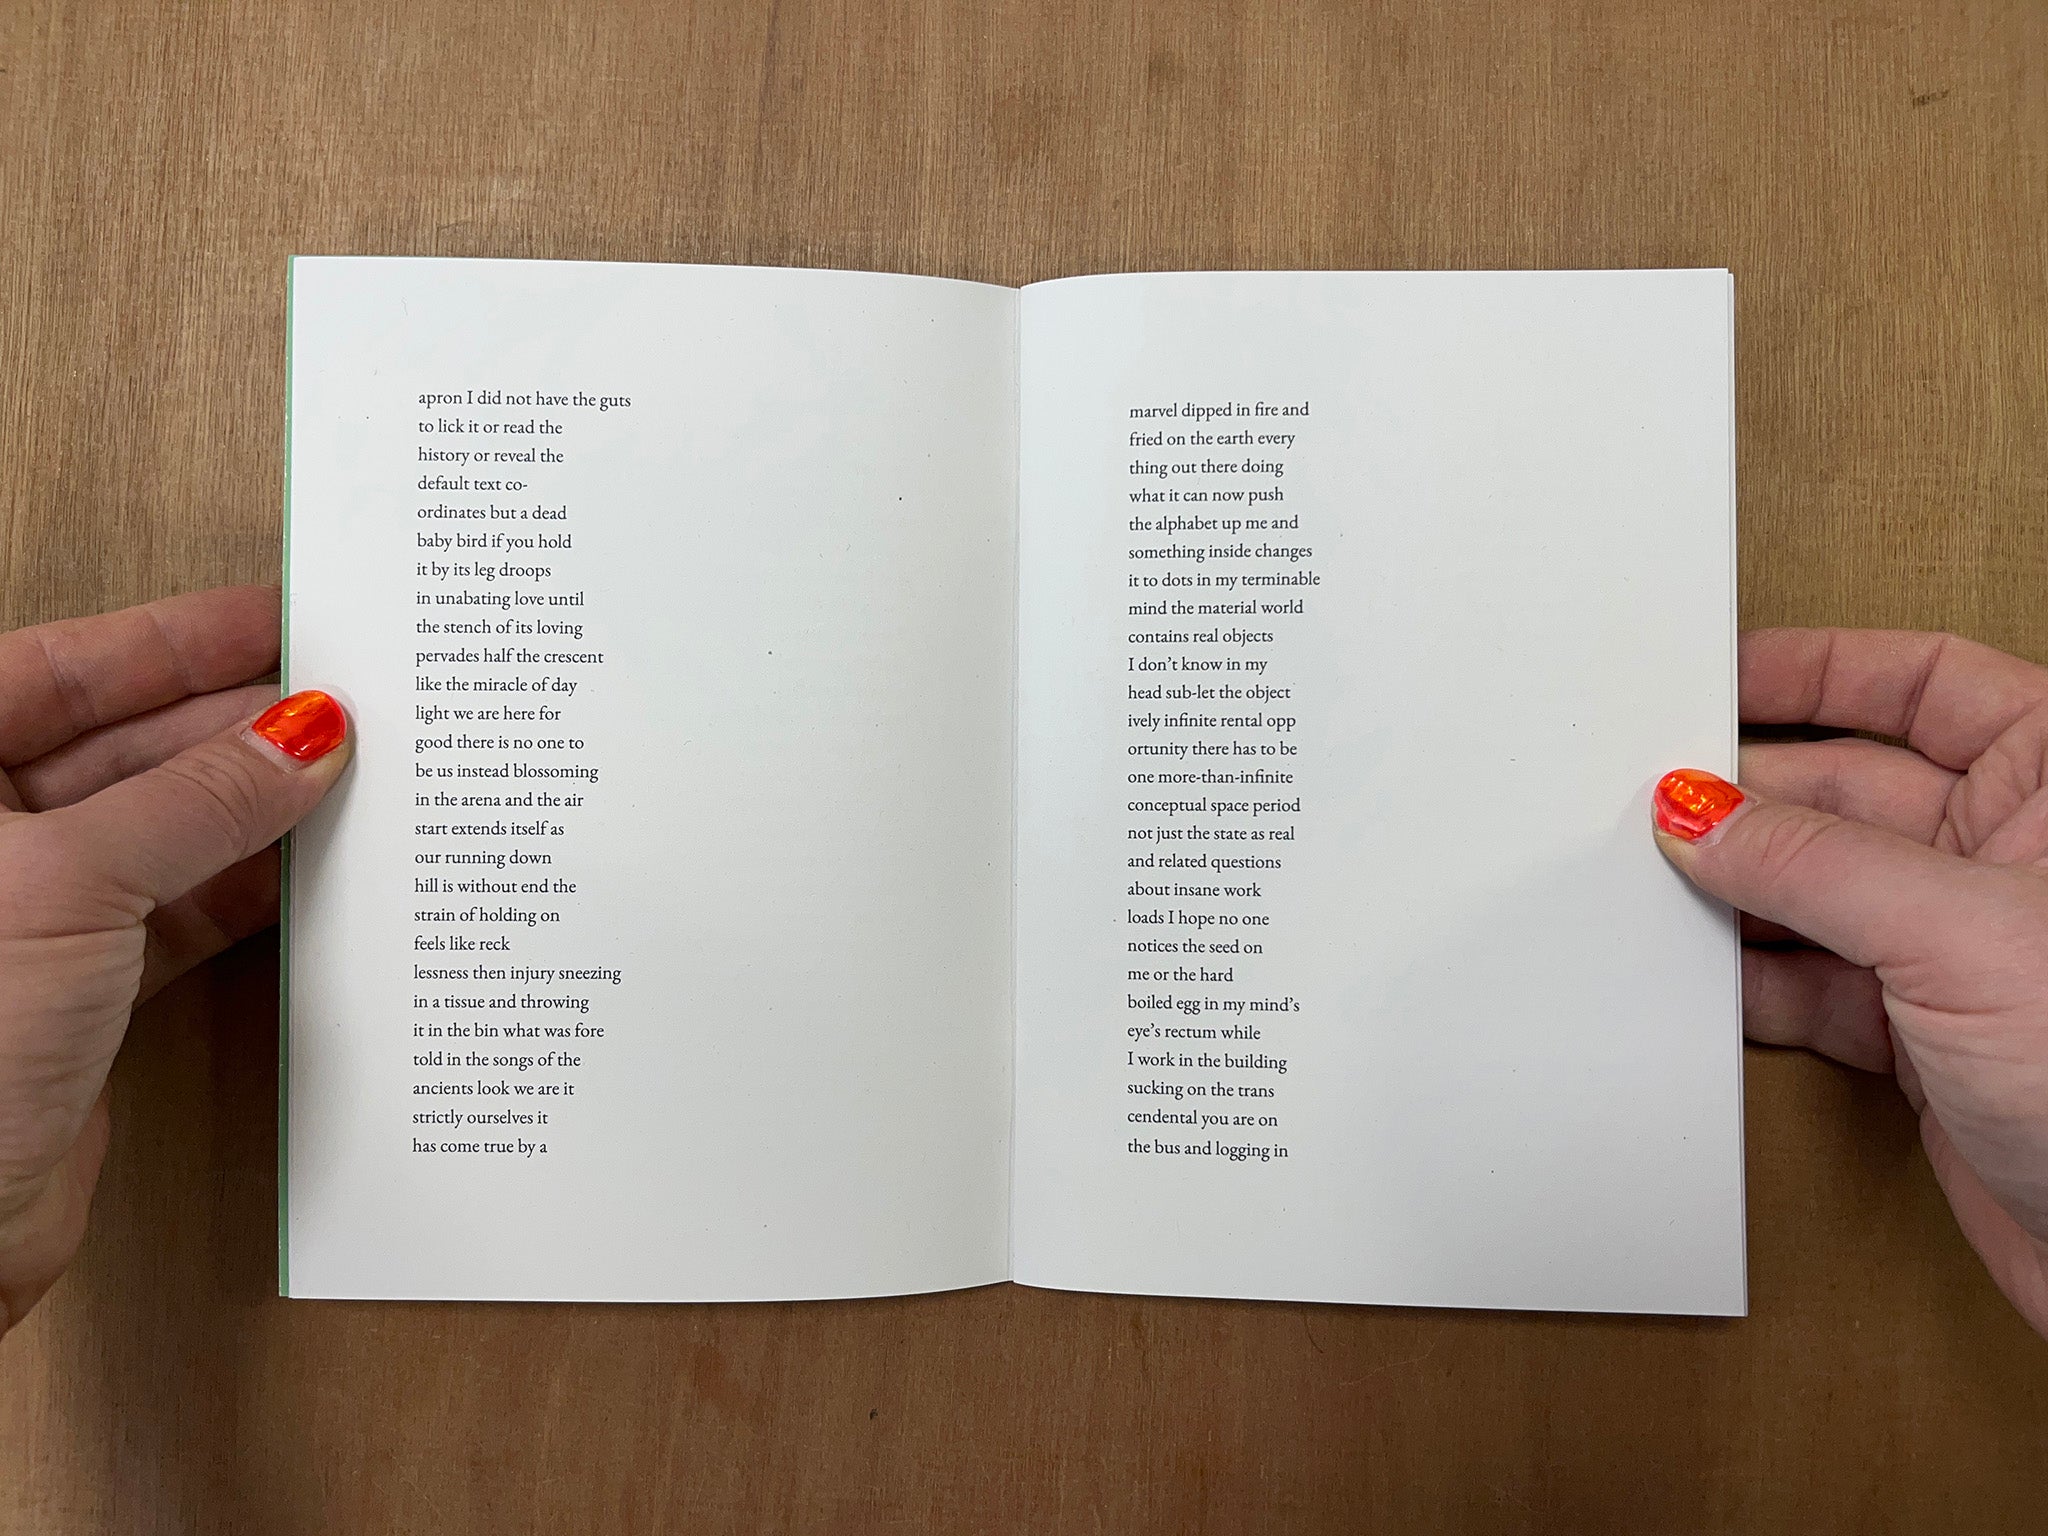 apron I did not have the guts
to lick it or read the
history or reveal the
default text co-
ordinates but a dead
baby bird if you hold
it by its leg droops
in unabating love until
the stench of its loving
pervades half the crescent
like the miracle of day
light we are here for
good there is no one to
be us instead blossoming
in the arena and the air
start extends itself as
our running down
hill is without end the
strain of holding on
feels like reck
lessness then injury sneezing
in a tissue and throwing
it in the bin what was fore
told in the songs of the
ancients look we are it
strictly ourselves it
has come true by a
marvel dipped in fire and
fried on the earth every
thing out there doing
what it can now push
the alphabet up me and
something inside changes
it to dots in my terminable
mind the material world
contains real objects
I don’t know in my
head sub-let the object
ively infinite rental opp
ortunity there has to be
one more-than-infinite
conceptual space period
not just the state as real
and related questions
about insane work
loads I hope no one
notices the seed on
me or the hard
boiled egg in my mind’s
eye’s rectum while
I work in the building
sucking on the trans
cendental you are on
the bus and logging in